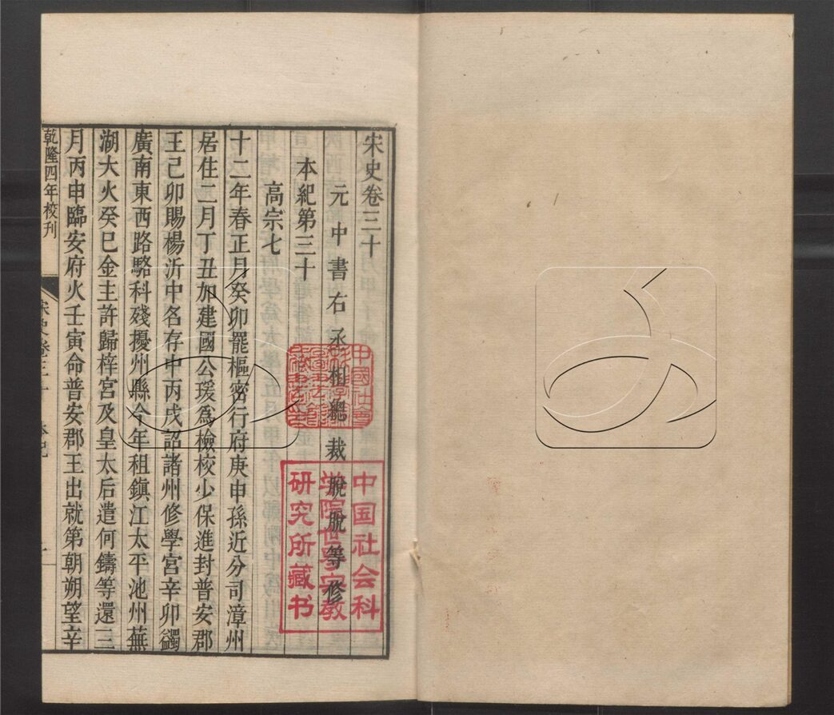 宋史卷三十
元中書右丞相總裁脫脫等修
本紀第三十
高宗七
十二年春正月癸卯罷樞密行府庚申孫近分司漳州
居住二月丁丑加建國公瑗爲檢校少保進封普安郡
王己卯賜楊沂中名存中丙戌詔諸州修學宮辛卯蠲
廣南東西路駱科殘擾州縣今年租鎮江太平池州蕪
湖大火癸巳金主許歸梓宮及皇太后遣何鑄等還三
月丙申臨安府火壬寅命普安郡王出就第朝朔望辛
乾隆四年校刊
宋史卷三十
本紀
一
中国社会科
学院世界宗教
研究所藏书